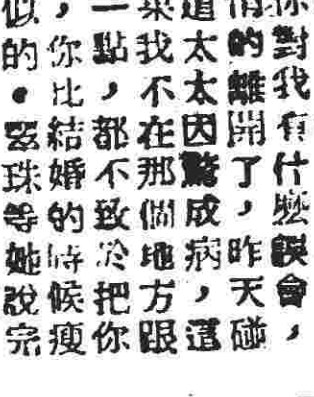 你對我有什麼誤會，
悄的離開了，昨天碰
道太太因驚成病，這
果我不在那個地方跟
一點，都不致於把你
，你比結婚的時候瘦
似的。亞珠等她說完